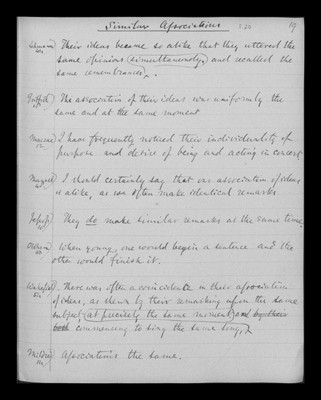 Similar Associations
Their ideas became so alike that they uttered the
same opinions (simultaneously), and recalled the
same remembrances).
The association of their ideas was uniformly the
same and at the same moment
I have frequently noticed their individuality of
purpose and desire of being and acting in concert
I should certainly say that our association of ideas
is alike, as we often make identical remarks.
They do make similar remarks at the same time.
When young, one would begin a sentence and the
other would finish it.
There was often a coincidence in their association
of ideas, as shewn by their remarking upon the same
subject, (at precisely the same moment, and by their
both commencing to sing the same song,)
Mildred Associations the same.